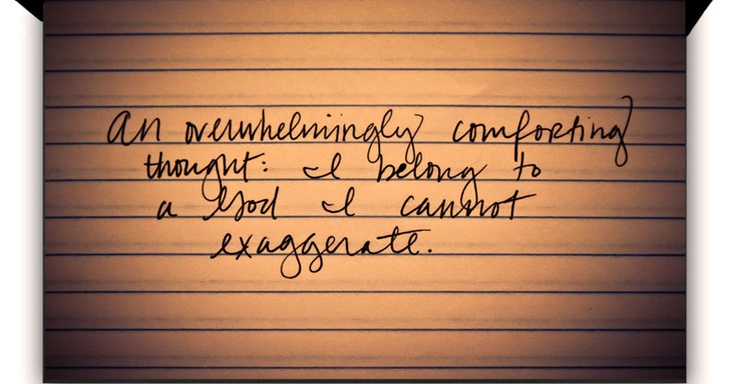 An overwhelmingly comforting
thought: I belong to
a God I cannot
exaggerate.